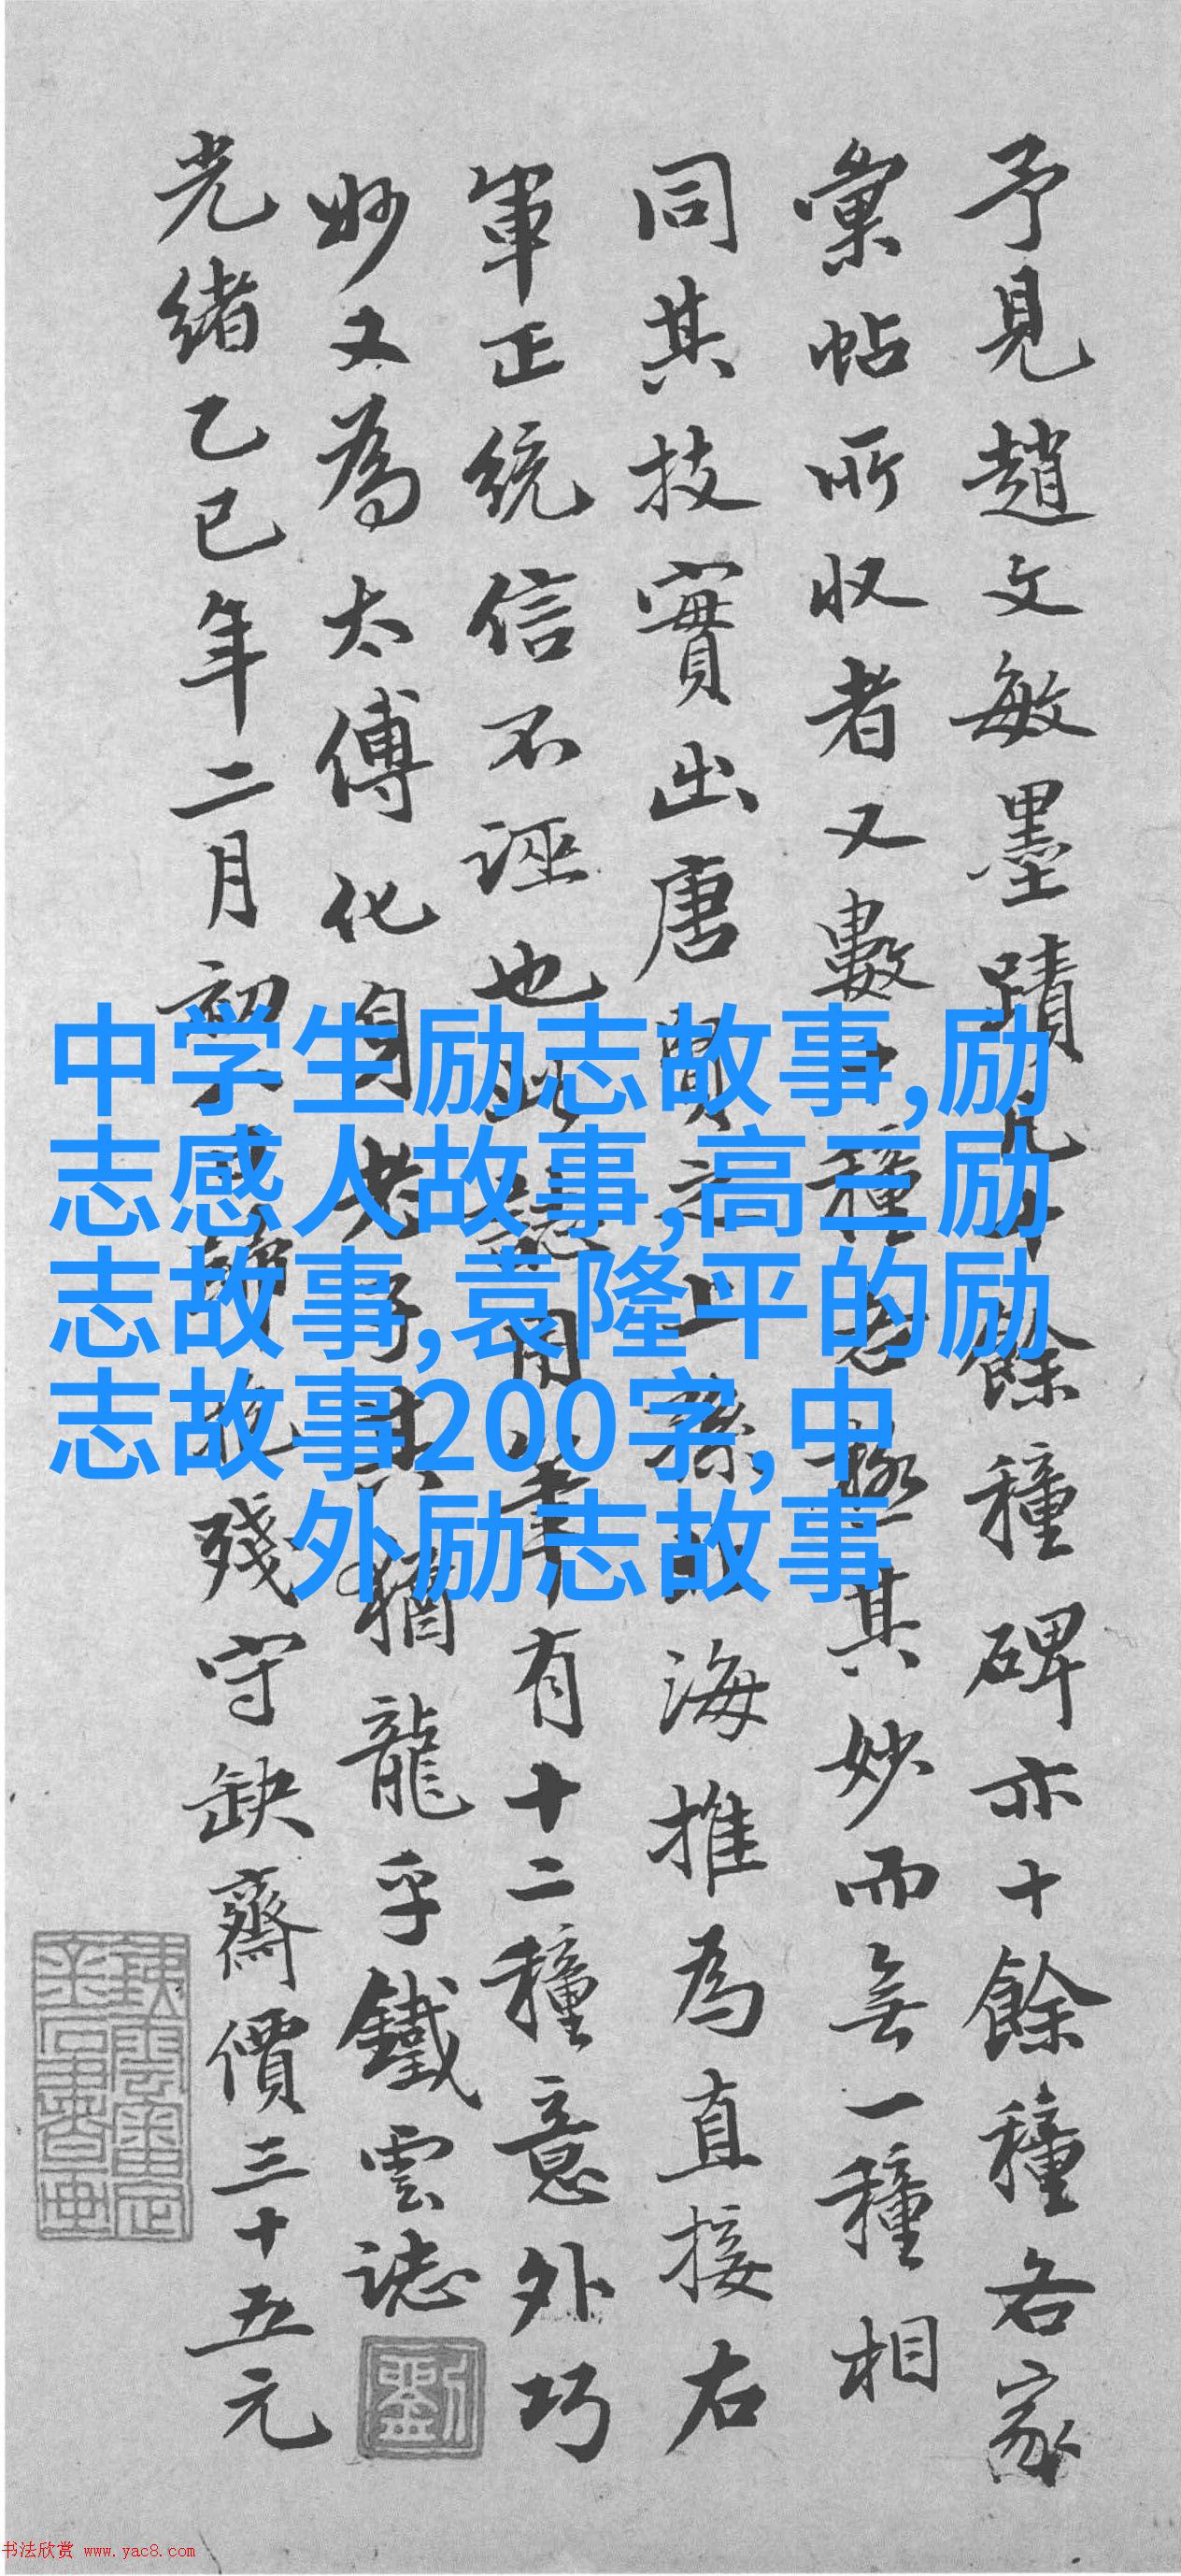 予見趙文敏墨蹟凡十餘種碑亦十餘種各家
彙帖所收者又數十種卷極其妙而無一種相
同其技實出唐賢之上孫北海推為直接右
軍正統信不誣也此卷用筆有十二種意外巧
妙又為太傅化身老子其猶龍乎鐵雲誌
光緒乙巳年二月初
殘守缺齋價三十五元
劉
中学生励志故事,励
志感人故事,高三励
志故事,袁隆平的励
志故事200字,中
外励志故事
书法欣赏 www.yac8.com